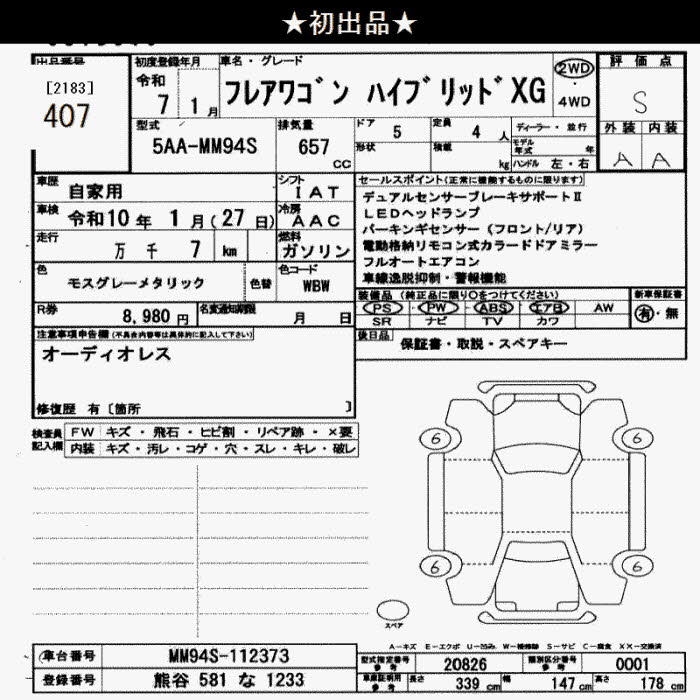 ★初出品★
出品番号
[2183]
407
初度登録年月
令和
7 1月
車名・グレード
フレアワゴン ハイブリッド XG
2WD
・
4WD
評価点
S
外装 内装
A A
型式
5AA-MM94S
排気量
657
cc
ドア 5
定員 4 人
形状
積載 kg
ディーラー・並行
モデル年式 年
ハンドル 左・右
車歴 自家用
シフト IAT
車検 令和10年 1月(27日)
冷房 AAC
走行 万 千 7 km
燃料 ガソリン
色 モスグレーメタリック
色替
色コード WBW
R券 8,980円
名変通知期限 月 日
セールスポイント(正常に機能するものに限ります)
デュアルセンサーブレーキサポートⅡ
LEDヘッドランプ
パーキングセンサー(フロント/リア)
電動格納リモコン式カラードドアミラー
フルオートエアコン
車線逸脱抑制・警報機能
装備品(純正品に限り○をつけてください)
PS・PW・ABS・エアB・AW
SR ナビ TV カワ
新車保証書
有・無
後日品 保証書・取説・スペアキー
注意事項申告欄(不具合内容等は具体的に記入して下さい)
オーディオレス
修復歴 有〔箇所 〕
検査員記入欄
FW キズ・飛石・ヒビ割・リペア跡・×要
内装 キズ・汚レ・コゲ・穴・スレ・キレ・破レ
6 6
6 6
スペア
A-キズ E-エクボ U-凹み W-補修跡 S-サビ C-腐食 XX-交換済
車台番号 MM94S-112373
登録番号 熊谷 581 な 1233
型式指定番号 参考 20826
類別区分番号 参考 0001
車庫証明用 参考 長さ 339 cm 幅 147 cm 高さ 178 cm